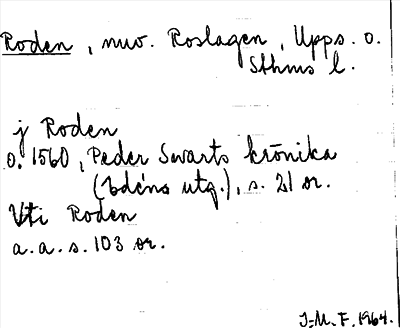 Roden, nuv. Roslagen, Upps. o.
Sthms l.
j Roden
o. 1560, Peder Swarts krönika
(Edéns utg.), s. 21 or.
Vti Roden
a. a. s. 103 or.
I-M. F. 1964.